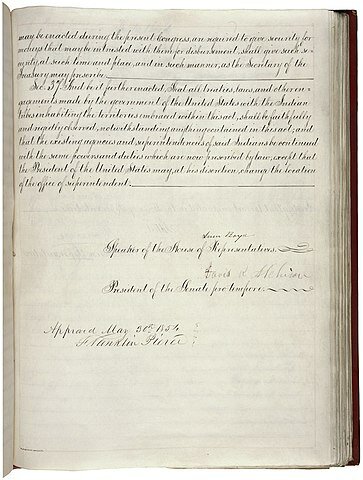 may be enacted during the present Congress, are required to give security for
moneys that may be intrusted with them for disbursement, shall give such se-
curity, at such time and place, and in such manner, as the Secretary of the
Treasury may prescribe.
Sec. 37. And be it further enacted, That all treaties, laws, and other en-
gagements made by the government of the United States with the Indian
tribes inhabiting the territories embraced within this act, shall be faithfully
and rigidly observed, notwithstanding anything contained in this act; and
that the existing agencies and superintendencies of said Indians be continued
with the same powers and duties which are now prescribed by law, except that
the President of the United States may, at his discretion, change the location
of the office of superintendent.
Linn Boyd
Speaker of the House of Representatives.
David R Atchison
President of the Senate pro tempore.
Approved May 30th 1854
Franklin Pierce